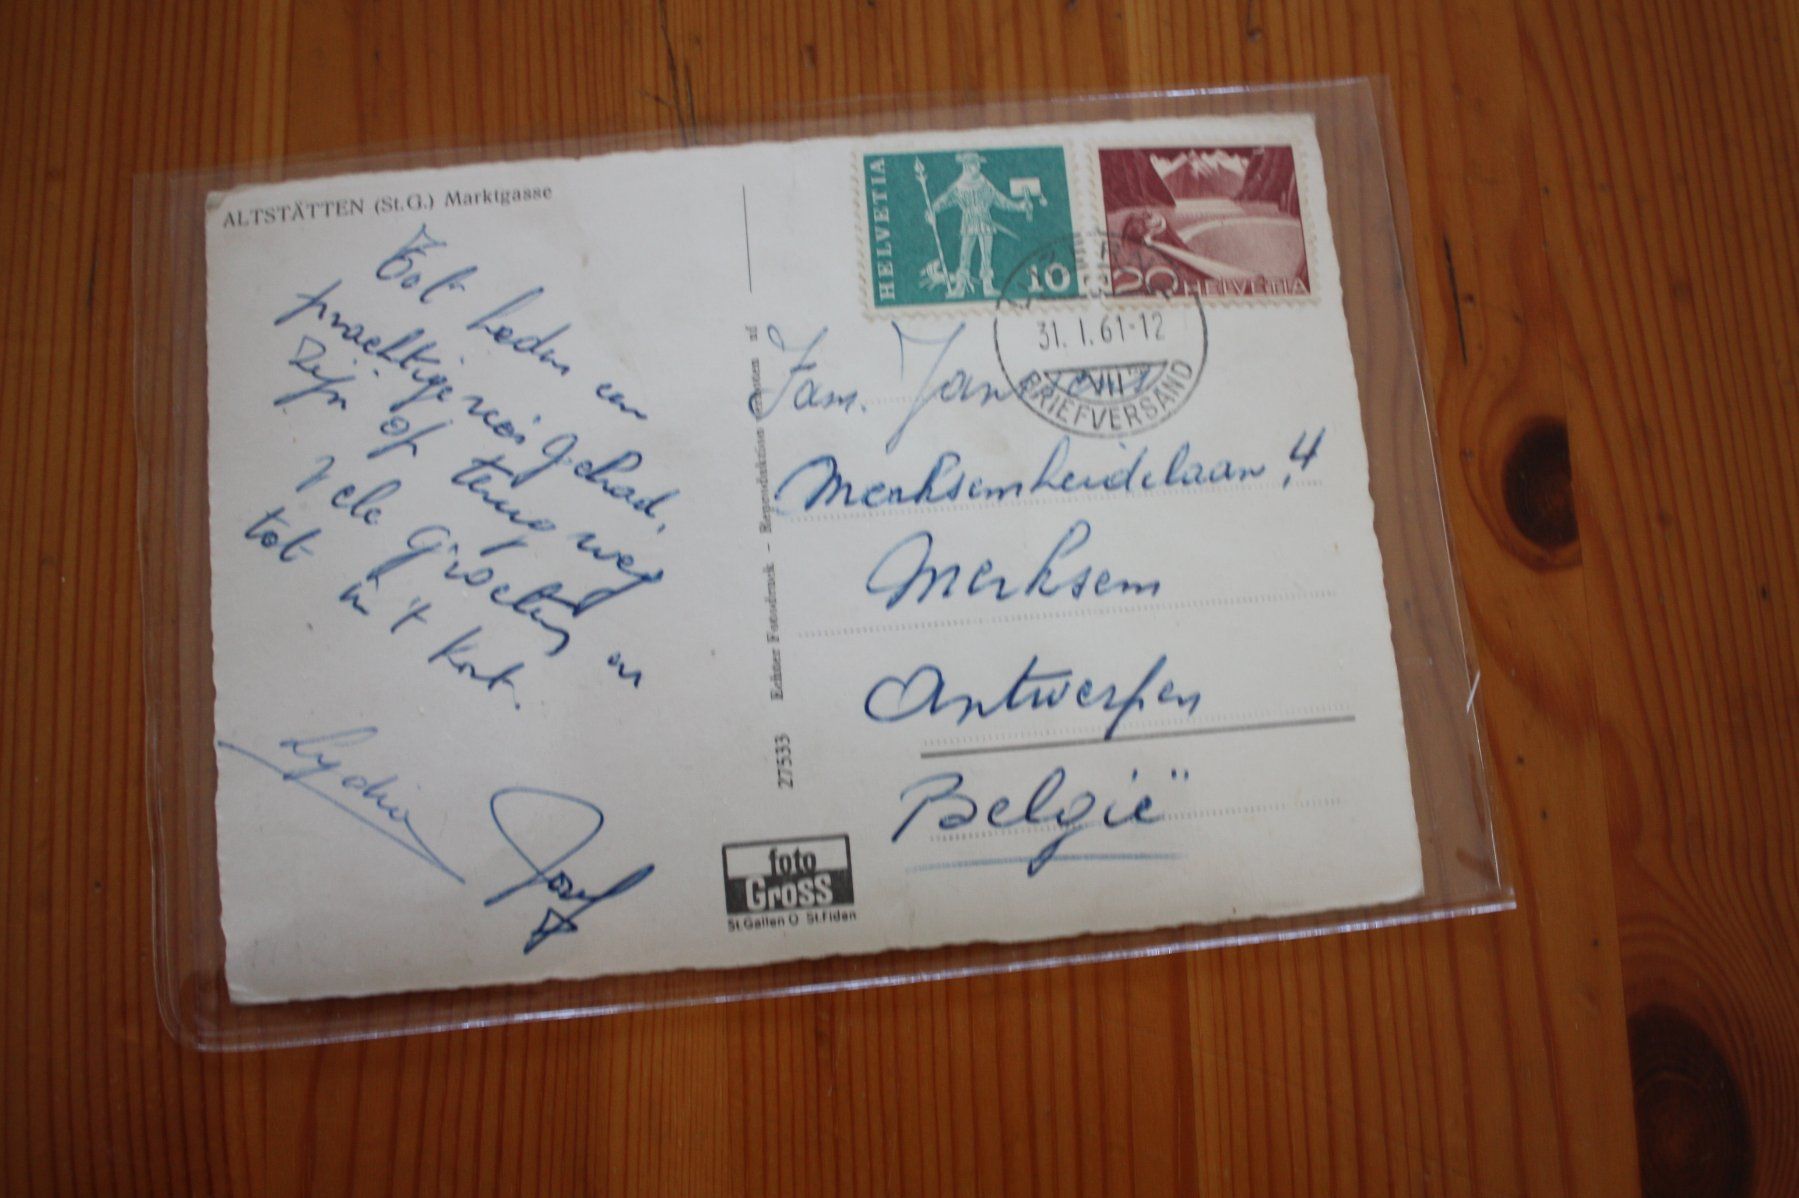 ALTSTÄTTEN (St.G.) Marktgasse
Tot heden een
prachtige reis gehad,
zijn op terug weg
Vele Groeten en
tot in 't kort.
Lydia
Jozef
27533 Echter Fotodruck - Reproduktion verboten
foto
Gross
St.Gallen O St.Fiden
HELVETIA
10
20
HELVETIA
31. I. 61-12
VIII
BRIEFVERSAND
Fam. Janssens
Merksemheidelaan, 4
Merksem
Antwerpen
België